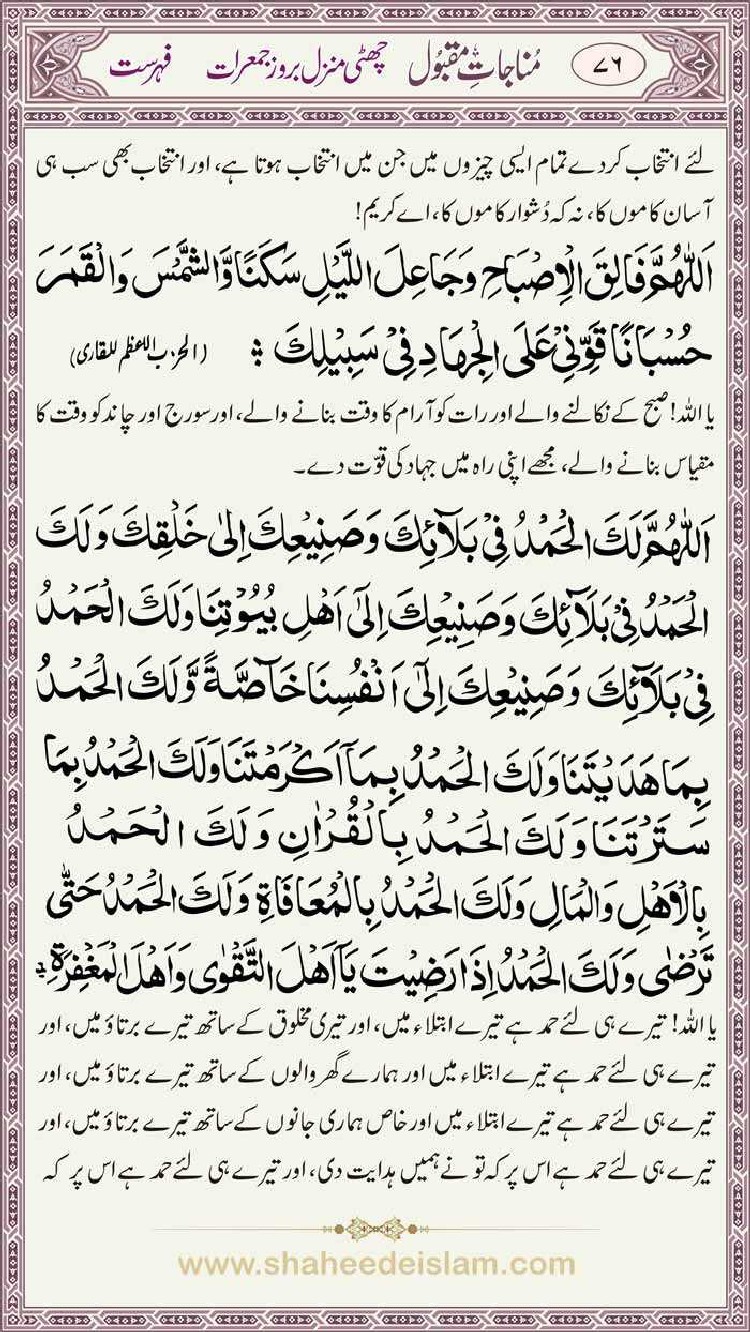 ۷۶ مُناجاتِ مقبُول چھٹی منزل بروز جمعرات فہرست
لئے انتخاب کردے تمام ایسی چیزوں میں جن میں انتخاب ہوتا ہے، اور انتخاب بھی سب ہی
آسان کاموں کا، نہ کہ دُشوار کاموں کا، اے کریم!
اَللّٰهُمَّ فَالِقَ الْاِصْبَاحِ وَجَاعِلَ اللَّيْلِ سَكَنًا وَّالشَّمْسَ وَالْقَمَرَ
حُسْبَانًا قَوِّنِيْ عَلَى الْجِهَادِ فِيْ سَبِيْلِكَ ؞ (الحزب الاعظم للقاری)
یا اللہ! صبح کے نکالنے والے اور رات کو آرام کا وقت بنانے والے، اور سورج اور چاند کو وقت کا
مقیاس بنانے والے، مجھے اپنی راہ میں جہاد کی قوّت دے۔
اَللّٰهُمَّ لَكَ الْحَمْدُ فِيْ بَلَآئِكَ وَصَنِيْعِكَ اِلٰى خَلْقِكَ وَلَكَ
الْحَمْدُ فِيْ بَلَآئِكَ وَصَنِيْعِكَ اِلٰٓى اَهْلِ بُيُوْتِنَا وَلَكَ الْحَمْدُ
فِيْ بَلَآئِكَ وَصَنِيْعِكَ اِلٰٓى اَنْفُسِنَا خَآصَّةً وَّلَكَ الْحَمْدُ
بِمَا هَدَيْتَنَا وَلَكَ الْحَمْدُ بِمَآ اَكْرَمْتَنَا وَلَكَ الْحَمْدُ بِمَا
سَتَرْتَنَا وَلَكَ الْحَمْدُ بِالْقُرْاٰنِ وَلَكَ الْحَمْدُ
بِالْاَهْلِ وَالْمَالِ وَلَكَ الْحَمْدُ بِالْمُعَافَاةِ وَلَكَ الْحَمْدُ حَتّٰى
تَرْضٰى وَلَكَ الْحَمْدُ اِذَا رَضِيْتَ يَآ اَهْلَ التَّقْوٰى وَاَهْلَ الْمَغْفِرَةِ ؞
یا اللہ! تیرے ہی لئے حمد ہے تیرے ابتلاء میں، اور تیری مخلوق کے ساتھ تیرے برتاؤ میں، اور
تیرے ہی لئے حمد ہے تیرے ابتلاء میں اور ہمارے گھر والوں کے ساتھ تیرے برتاؤ میں، اور
تیرے ہی لئے حمد ہے تیرے ابتلاء میں اور خاص ہماری جانوں کے ساتھ تیرے برتاؤ میں، اور
تیرے ہی لئے حمد ہے اس پر کہ تو نے ہمیں ہدایت دی، اور تیرے ہی لئے حمد ہے اس پر کہ
www.shaheedeislam.com